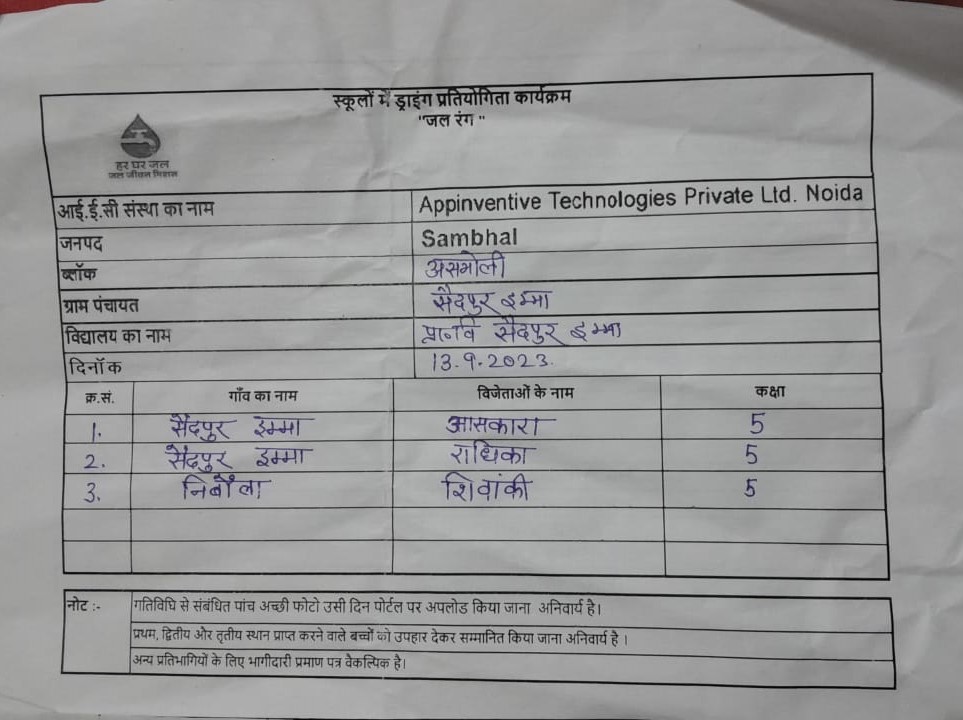 स्कूलों में ड्राइंग प्रतियोगिता कार्यक्रम
"जल रंग "
हर घर जल
जल जीवन मिशन
आई.ई.सी संस्था का नाम Appinventive Technologies Private Ltd. Noida
जनपद Sambhal
ब्लॉक असमोली
ग्राम पंचायत सैदपुर इम्मा
विद्यालय का नाम प्रा०वि सैदपुर इम्मा
दिनाँक 13.9.2023.
क्र.सं. गाँव का नाम विजेताओं के नाम कक्षा
1. सैदपुर इम्मा आसकारा 5
2. सैदपुर इम्मा राधिका 5
3. निबौला शिवांकी 5
नोट :- गतिविधि से संबंधित पांच अच्छी फोटो उसी दिन पोर्टल पर अपलोड किया जाना अनिवार्य है।
प्रथम, द्वितीय और तृतीय स्थान प्राप्त करने वाले बच्चों को उपहार देकर सम्मानित किया जाना अनिवार्य है ।
अन्य प्रतिभागियों के लिए भागीदारी प्रमाण पत्र वैकल्पिक है।